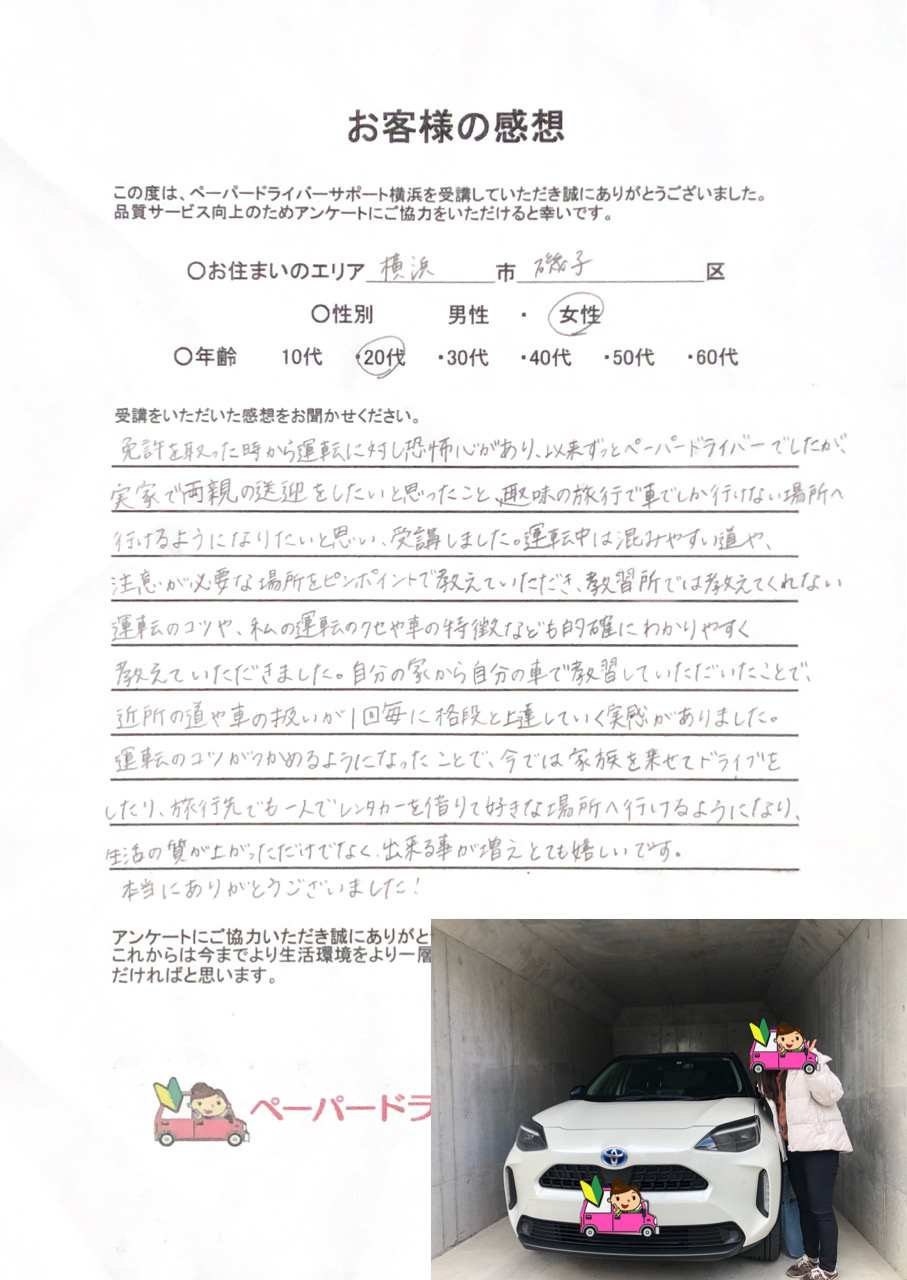 お客様の感想
この度は、ペーパードライバーサポート横浜を受講していただき誠にありがとうございました。
品質サービス向上のためアンケートにご協力をいただけると幸いです。
〇お住まいのエリア 横浜 市 磯子 区
〇性別 男性 ・ 女性
〇年齢 10代 ・20代 ・30代 ・40代 ・50代 ・60代
受講をいただいた感想をお聞かせください。
免許を取った時から運転に対し恐怖心があり、以来ずっとペーパードライバーでしたが、
実家で両親の送迎をしたいと思ったこと、趣味の旅行で車でしか行けない場所へ
行けるようになりたいと思い、受講しました。運転中は混みやすい道や、
注意が必要な場所をピンポイントで教えていただき、教習所では教えてくれない
運転のコツや、私の運転のクセや車の特徴なども的確にわかりやすく
教えていただきました。自分の家から自分の車で教習していただいたことで、
近所の道や車の扱いが1回毎に格段と上達していく実感がありました。
運転のコツがつかめるようになったことで、今では家族を乗せてドライブを
したり、旅行先でも一人でレンタカーを借りて好きな場所へ行けるようになり、
生活の質が上がっただけでなく、出来る事が増えとても嬉しいです。
本当にありがとうございました!
アンケートにご協力いただき誠にありがと
これからは今までより生活環境をより一層
だければと思います。
ペーパードラ